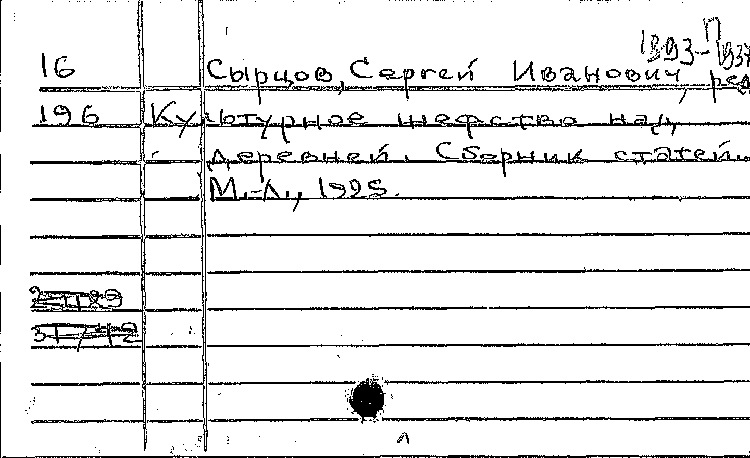 1893-1937
16 Сырцов, Сергей Иванович, ред.
196 Культурное шефство над
деревней. Сборник статей.
М.-Л., 1925.